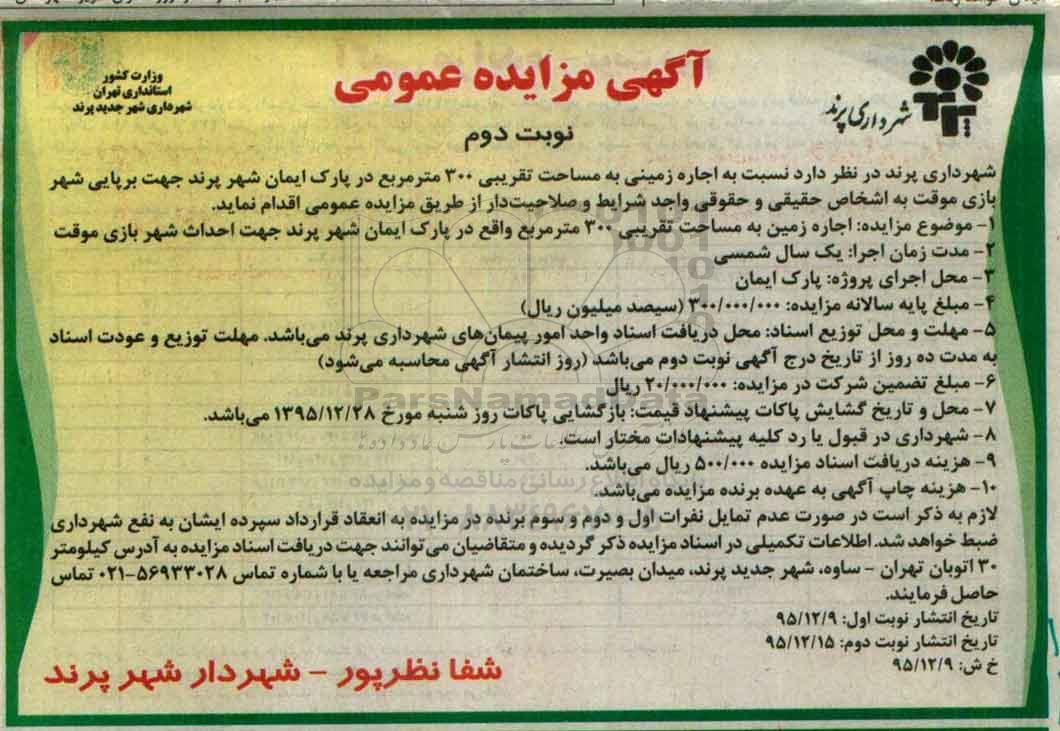 وزارت کشور
استانداری تهران
شهرداری شهر جدید پرند
آگهی مزایده عمومی
نوبت دوم
شهرداری پرند
شهرداری پرند در نظر دارد نسبت به اجاره زمینی به مساحت تقریبی ۳۰۰ مترمربع در پارک ایمان شهر پرند جهت برپایی شهر
بازی موقت به اشخاص حقیقی و حقوقی واجد شرایط و صلاحیت‌دار از طریق مزایده عمومی اقدام نماید.
۱- موضوع مزایده: اجاره زمین به مساحت تقریبی ۳۰۰ مترمربع واقع در پارک ایمان شهر پرند جهت احداث شهر بازی موقت
۲- مدت زمان اجرا: یک سال شمسی
۳- محل اجرای پروژه: پارک ایمان
۴- مبلغ پایه سالانه مزایده: ۳۰۰/۰۰۰/۰۰۰ (سیصد میلیون ریال)
۵- مهلت و محل توزیع اسناد: محل دریافت اسناد واحد امور پیمان‌های شهرداری پرند می‌باشد. مهلت توزیع و عودت اسناد
به مدت ده روز از تاریخ درج آگهی نوبت دوم می‌باشد (روز انتشار آگهی محاسبه می‌شود)
۶- مبلغ تضمین شرکت در مزایده: ۲۰/۰۰۰/۰۰۰ ریال
۷- محل و تاریخ گشایش پاکات پیشنهاد قیمت: بازگشایی پاکات روز شنبه مورخ ۱۳۹۵/۱۲/۲۸ می‌باشد.
۸- شهرداری در قبول یا رد کلیه پیشنهادات مختار است.
۹- هزینه دریافت اسناد مزایده ۵۰۰/۰۰۰ ریال می‌باشد.
۱۰- هزینه چاپ آگهی به عهده برنده مزایده می‌باشد.
لازم به ذکر است در صورت عدم تمایل نفرات اول و دوم و سوم برنده در مزایده به انعقاد قرارداد سپرده ایشان به نفع شهرداری
ضبط خواهد شد. اطلاعات تکمیلی در اسناد مزایده ذکر گردیده و متقاضیان می‌توانند جهت دریافت اسناد مزایده به آدرس کیلومتر
۳۰ اتوبان تهران - ساوه، شهر جدید پرند، میدان بصیرت، ساختمان شهرداری مراجعه یا با شماره تماس ۵۶۹۳۳۰۲۸-۰۲۱ تماس
حاصل فرمایند.
تاریخ انتشار نوبت اول: ۹۵/۱۲/۹
تاریخ انتشار نوبت دوم: ۹۵/۱۲/۱۵
خ ش: ۹۵/۱۲/۹
شفا نظرپور - شهردار شهر پرند
ParsNamadData